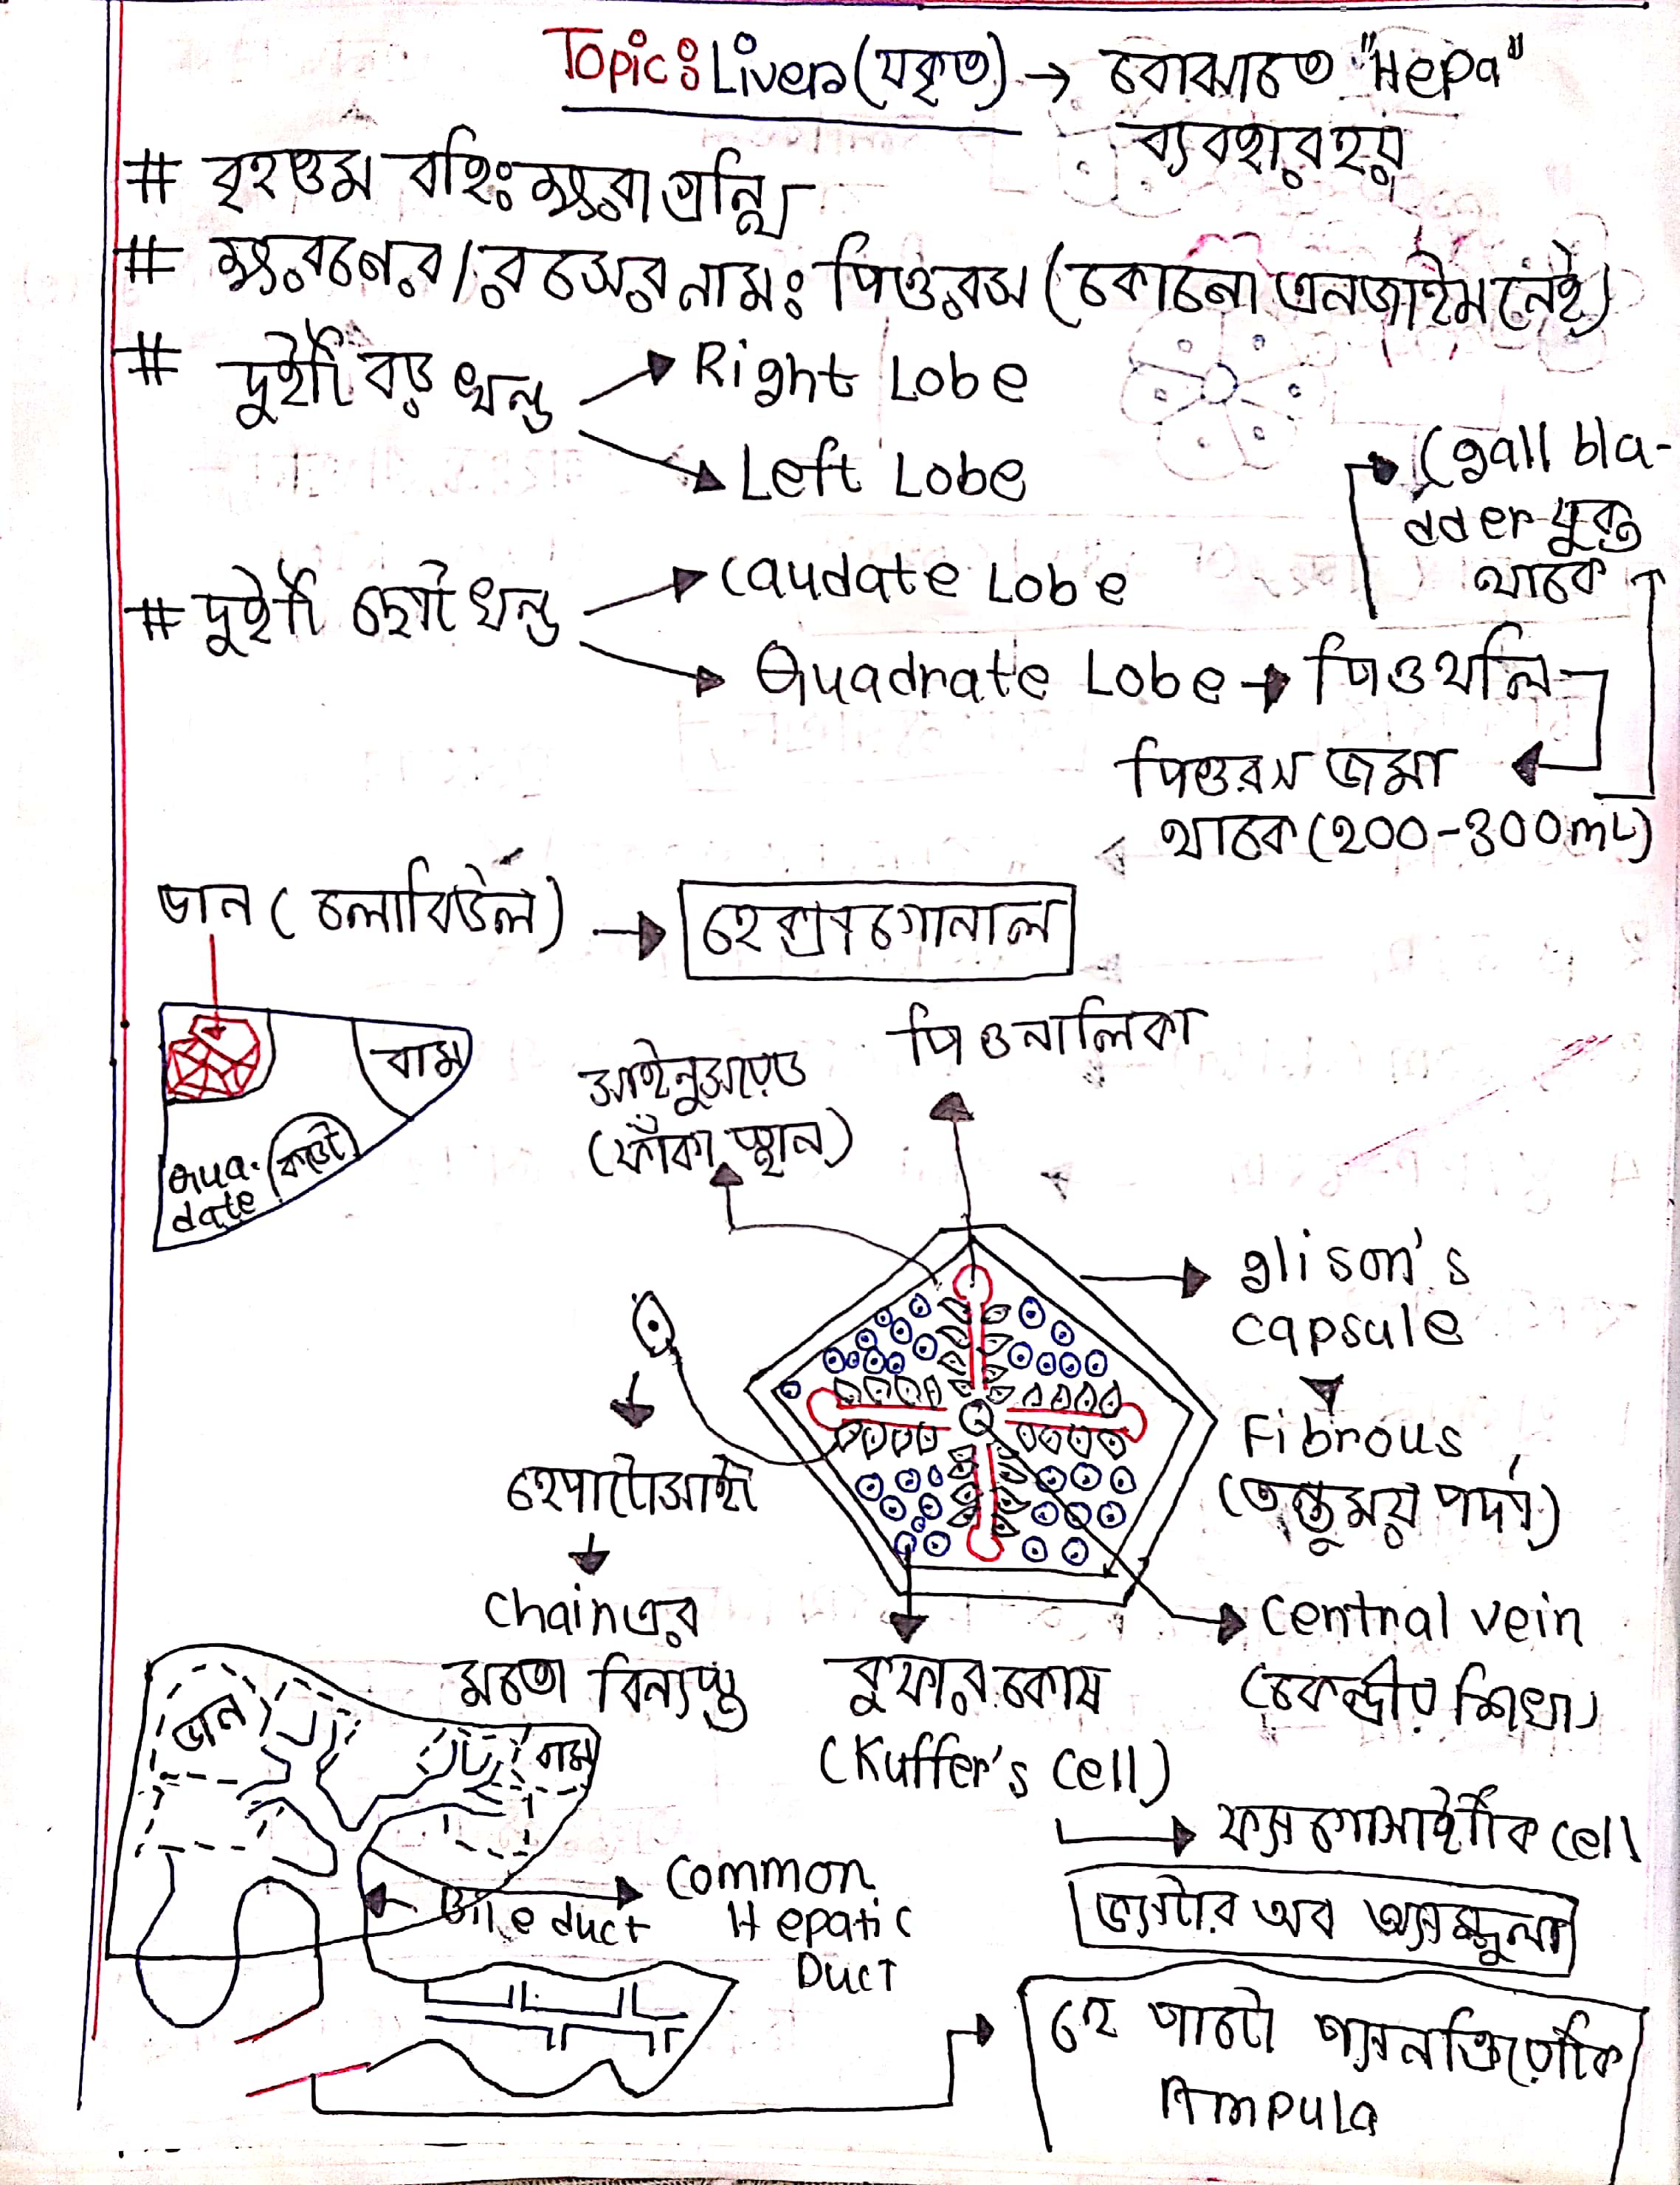 Topic: Liver (যকৃত) → বোঝাতে "Hepa"
ব্যবহার হয়
# বৃহত্তম বহিঃক্ষরা গ্রন্থি
# ক্ষরণের/রসের নামঃ পিত্তরস (কোনো এনজাইম নেই)
# দুইটি বড় খন্ড → Right Lobe
→ Left Lobe
(gall bla-
dder যুক্ত
থাকে
# দুইটি ছোট খন্ড → Caudate Lobe
→ Quadrate Lobe → পিত্তথলি
পিত্তরস জমা
থাকে (200-300mL)
ডান (লোবিউল) → হেক্সাগোনাল
বাম
Qua-
date
কডেট
পিত্তনালিকা
সাইনুসয়েড
(ফাঁকা স্থান)
glison's
capsule
Fibrous
(তন্তুময় পর্দা)
হেপাটোসাইট
Chain এর
মতো বিন্যস্ত
Central vein
(কেন্দ্রীয় শিরা)
কুফার কোষ
(Kuffer's cell)
→ ফ্যাগোসাইটিক cell
ডান
বাম
Bile duct
Common
Hepatic
Duct
ভ্যাটার অব অ্যাম্পুলা
হেপাটো প্যানক্রিয়েটিক
Ampula